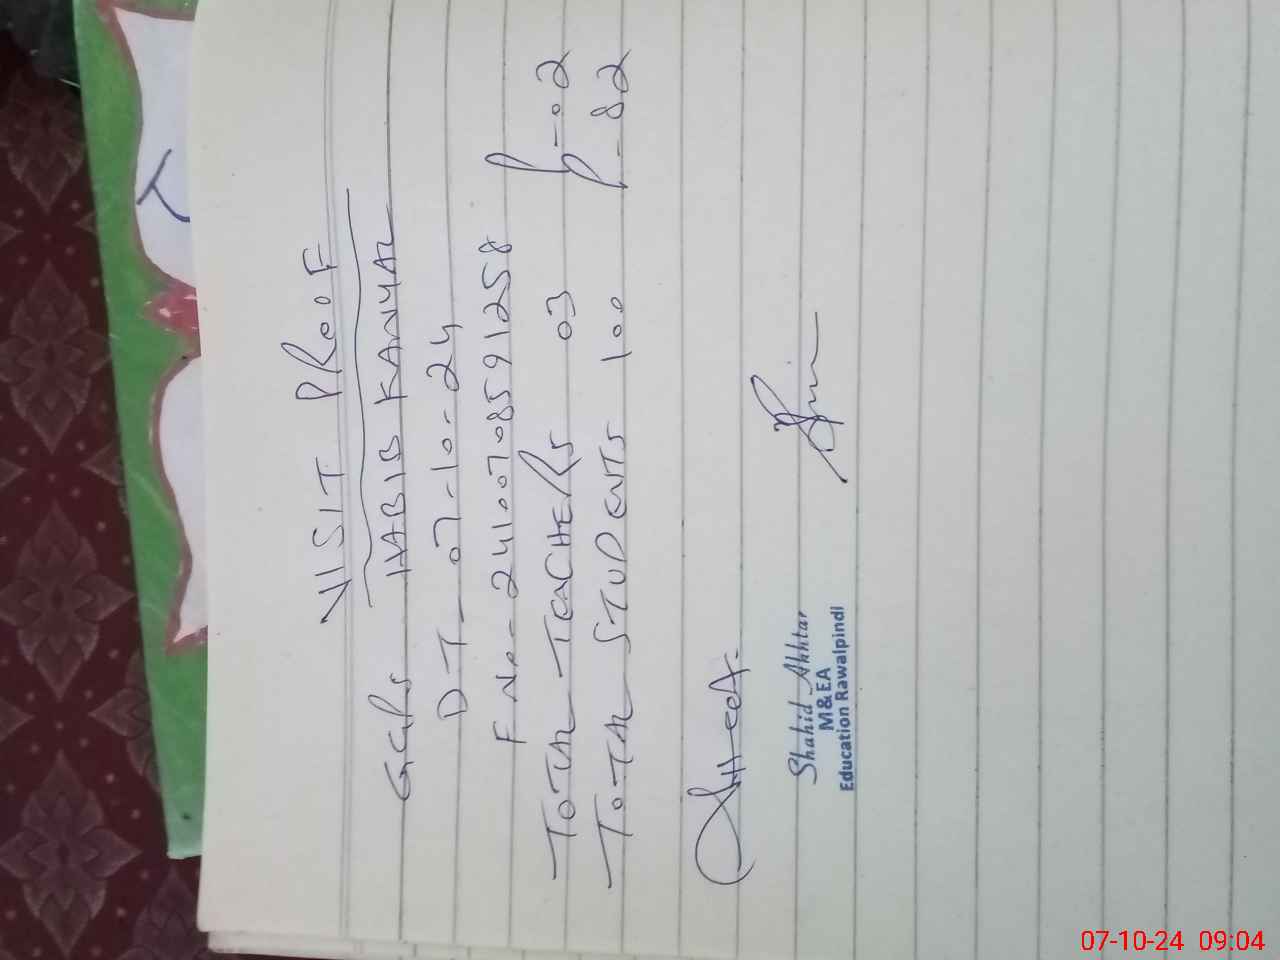 VISIT PROOF
GGPS HABIB KANYAL
DT - 07-10-24
F No - 24100708591258
TOTAL TEACHERS 03 P-02
TOTAL STUDENTS 100 P-82
Shahid Akhtar
M&EA
Education Rawalpindi
07-10-24 09:04